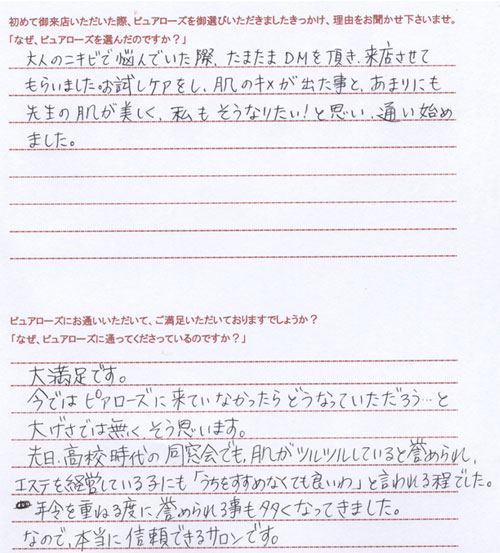 初めて御来店いただいた際、ピュアローズを御選びいただきましたきっかけ、理由をお聞かせ下さいませ。
「なぜ、ピュアローズを選んだのですか？」
大人のニキビで悩んでいた際、たまたまDMを頂き、来店させて
もらいました。お試しケアをし、肌のキメが出た事と、あまりにも
先生の肌が美しく、私もそうなりたい！と思い、通い始め
ました。
ピュアローズにお通いいただいて、ご満足いただいておりますでしょうか？
「なぜ、ピュアローズに通ってくださっているのですか？」
大満足です。
今ではピアローズに来ていなかったらどうなっていただろう…と
大げさでは無くそう思います。
先日、高校時代の同窓会でも、肌がツルツルしていると誉められ、
エステを経営している子にも「うちをすすめなくても良いわ」と言われる程でした。
年令を重ねる度に誉められる事も多くなってきました。
なので、本当に信頼できるサロンです。